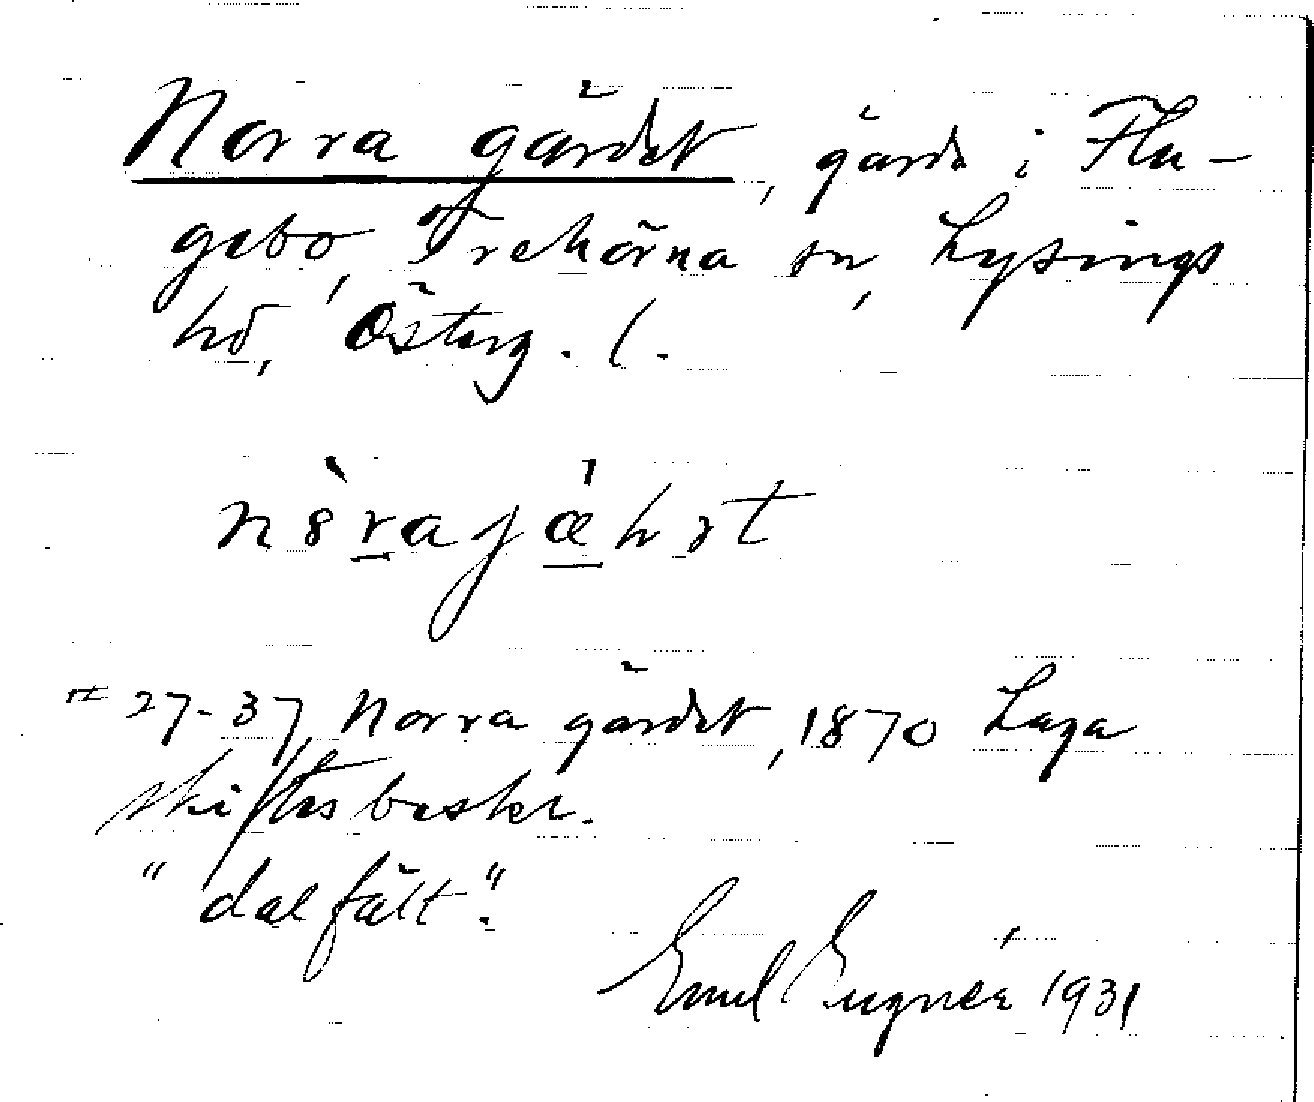 Norra gärdet, gärde i Flu-
gebo, Trehörna sn, Lysings
hd, Österg. l.
n8̀rajǽhṛt
nr 27-37, Norra gärdet, 1870 Laga
skiftesbeskr.
"dalfält".
Emil 1931